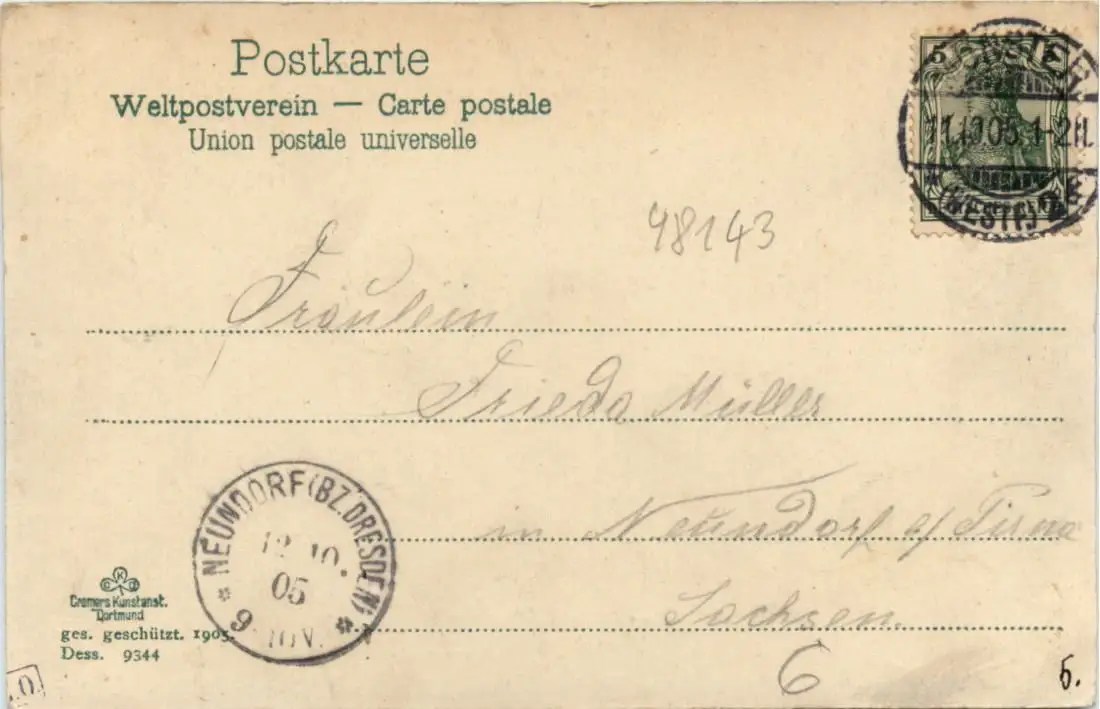 Postkarte
Weltpostverein — Carte postale
Union postale universelle
5
11.10.05.1-2N.
* (WESTF.)
48143
Fräulein
Frieda Müller
in Neundorf a/ Pirna
Sachsen.
NEUNDORF (BZ. DRESDEN)
12.10.
05
9-10V.
K
Cramers Kunstanst.
Dortmund
ges. geschützt. 1905.
Dess. 9344
6
5.